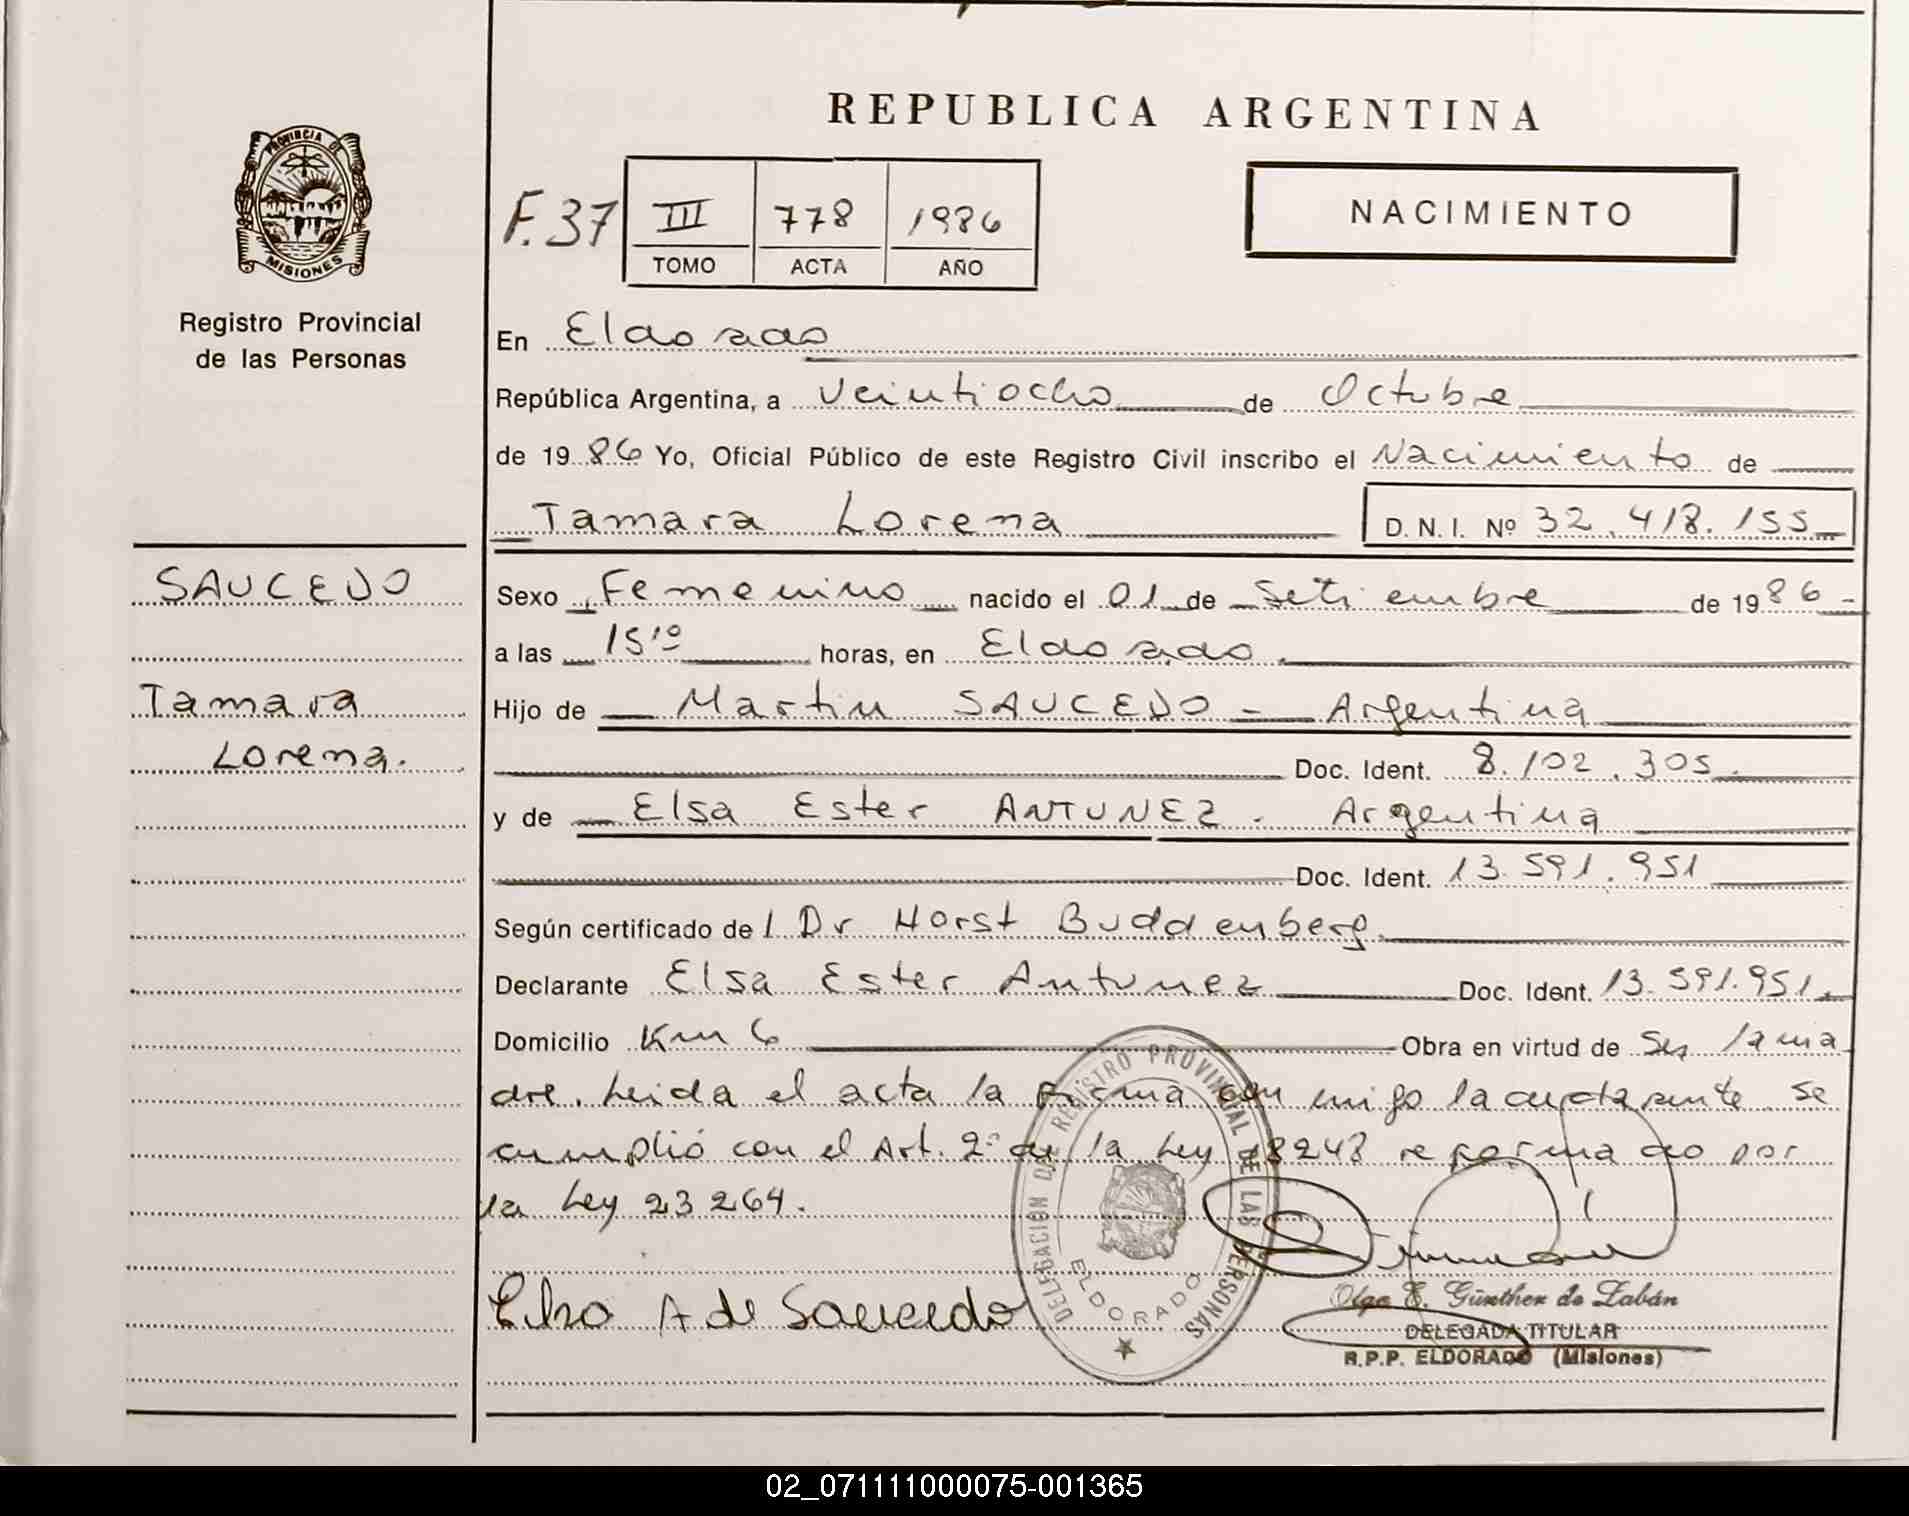 REPUBLICA ARGENTINA
PROVINCIA DE
MISIONES
Registro Provincial
de las Personas
F. 37 III 778 1986
TOMO ACTA AÑO
NACIMIENTO
En Eldorado
República Argentina, a Veintiocho de Octubre
de 1986 Yo, Oficial Público de este Registro Civil inscribo el Nacimiento de
Tamara Lorena D. N. I. Nº 32.418.155
SAUCEDO
Tamara
Lorena.
Sexo Femenino nacido el 01 de Setiembre de 1986
a las 15,10 horas, en Eldorado.
Hijo de Martin SAUCEDO - Argentina
Doc. Ident. 8.102.305.
y de Elsa Ester ANTUNEZ. Argentina
Doc. Ident. 13.591.951
Según certificado de l Dr Horst Buddenberg.
Declarante Elsa Ester Antunez Doc. Ident. 13.591.951.
Domicilio Km 6 Obra en virtud de Ser la ma
dre. Leida el acta la firma con migo la declarante. Se
cumplió con el Art. 2º de la Ley 18248 reformado por
la Ley 23264.
Elsa A de Saucedo
DELEGACION DEL REGISTRO PROVINCIAL DE LAS PERSONAS
ELDORADO
Olga E. Günther de Zabán
DELEGADA TITULAR
R.P.P. ELDORADO (Misiones)
02_071111000075-001365